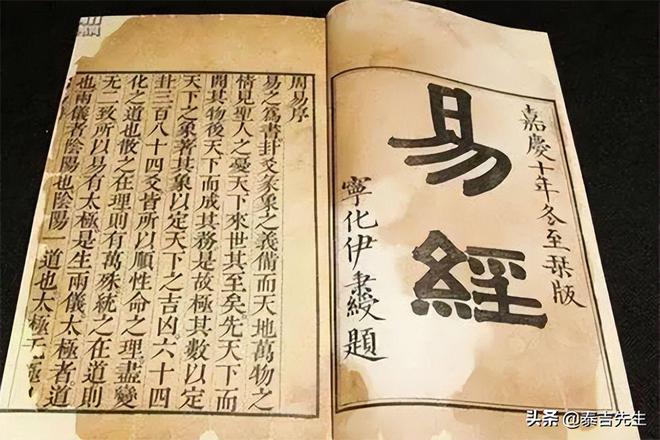 嘉慶十年冬至栞版
易經
寧化伊秉綬題
周易序
易之爲書卦爻彖象之義備而天地萬物之
情見聖人之憂天下來世其至矣先天下而
開其物後天下而成其務是故極其數以定
天下之象著其象以定天下之吉凶六十四
卦三百八十四爻皆所以順性命之理盡變
化之道也散之在理則有萬殊統之在道則
无二致所以易有太極是生兩儀太極者道
也兩儀者陰陽也陰陽一道也太極无極
头条 @泰吉先生